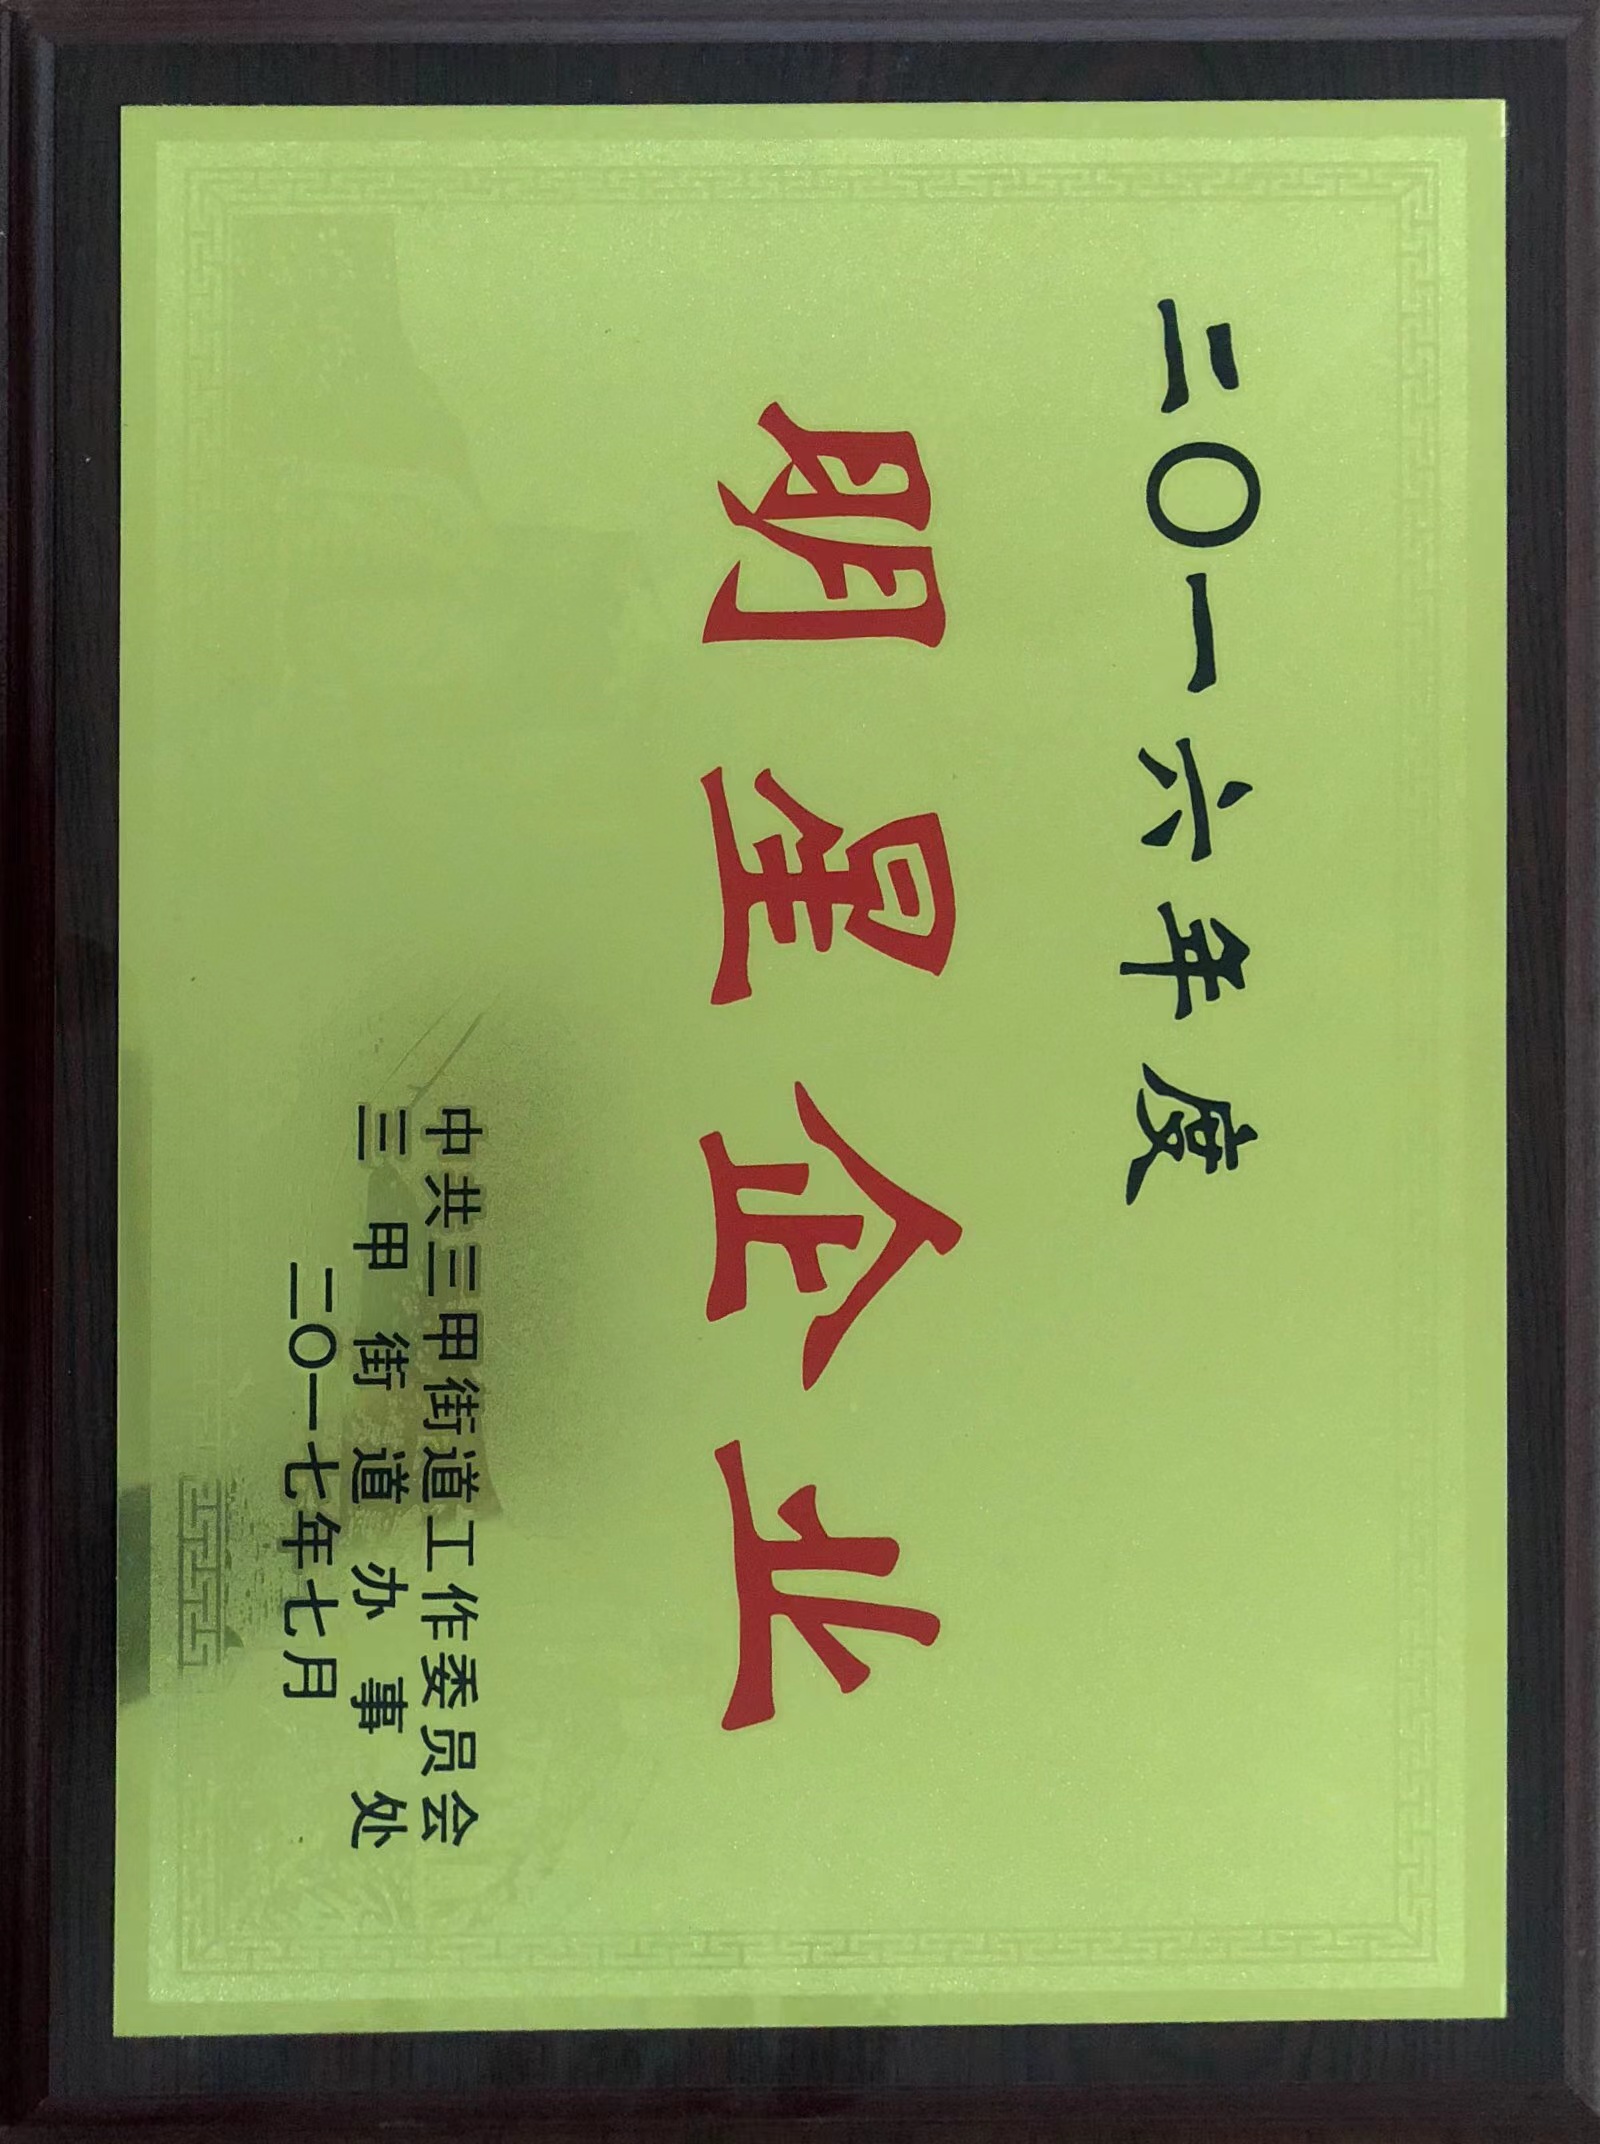 二〇一六年度
明星企业
中共三甲街道工作委员会
三甲街道办事处
二〇一七年七月